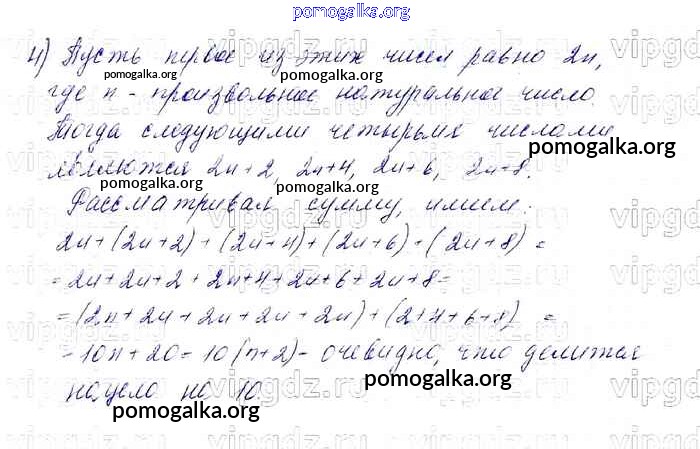 pomogalka.org
4) Пусть первое из этих чисел равно 2n,
pomogalka.org
где n - произвольное натуральное число.
pomogalka.org
Тогда следующими четырьмя числами
pomogalka.org
являются 2n+2, 2n+4, 2n+6, 2n+8.
pomogalka.org pomogalka.org
Рассматривая сумму, имеем:
2n+(2n+2)+(2n+4)+(2n+6)+(2n+8)=
=2n+2n+2+2n+4+2n+6+2n+8=
=(2n+2n+2n+2n+2n)+(2+4+6+8)=
=10n+20=10(n+2)- очевидно, что делится
нацело на 10.
pomogalka.org
pomogalka.org
vipgdz.ru